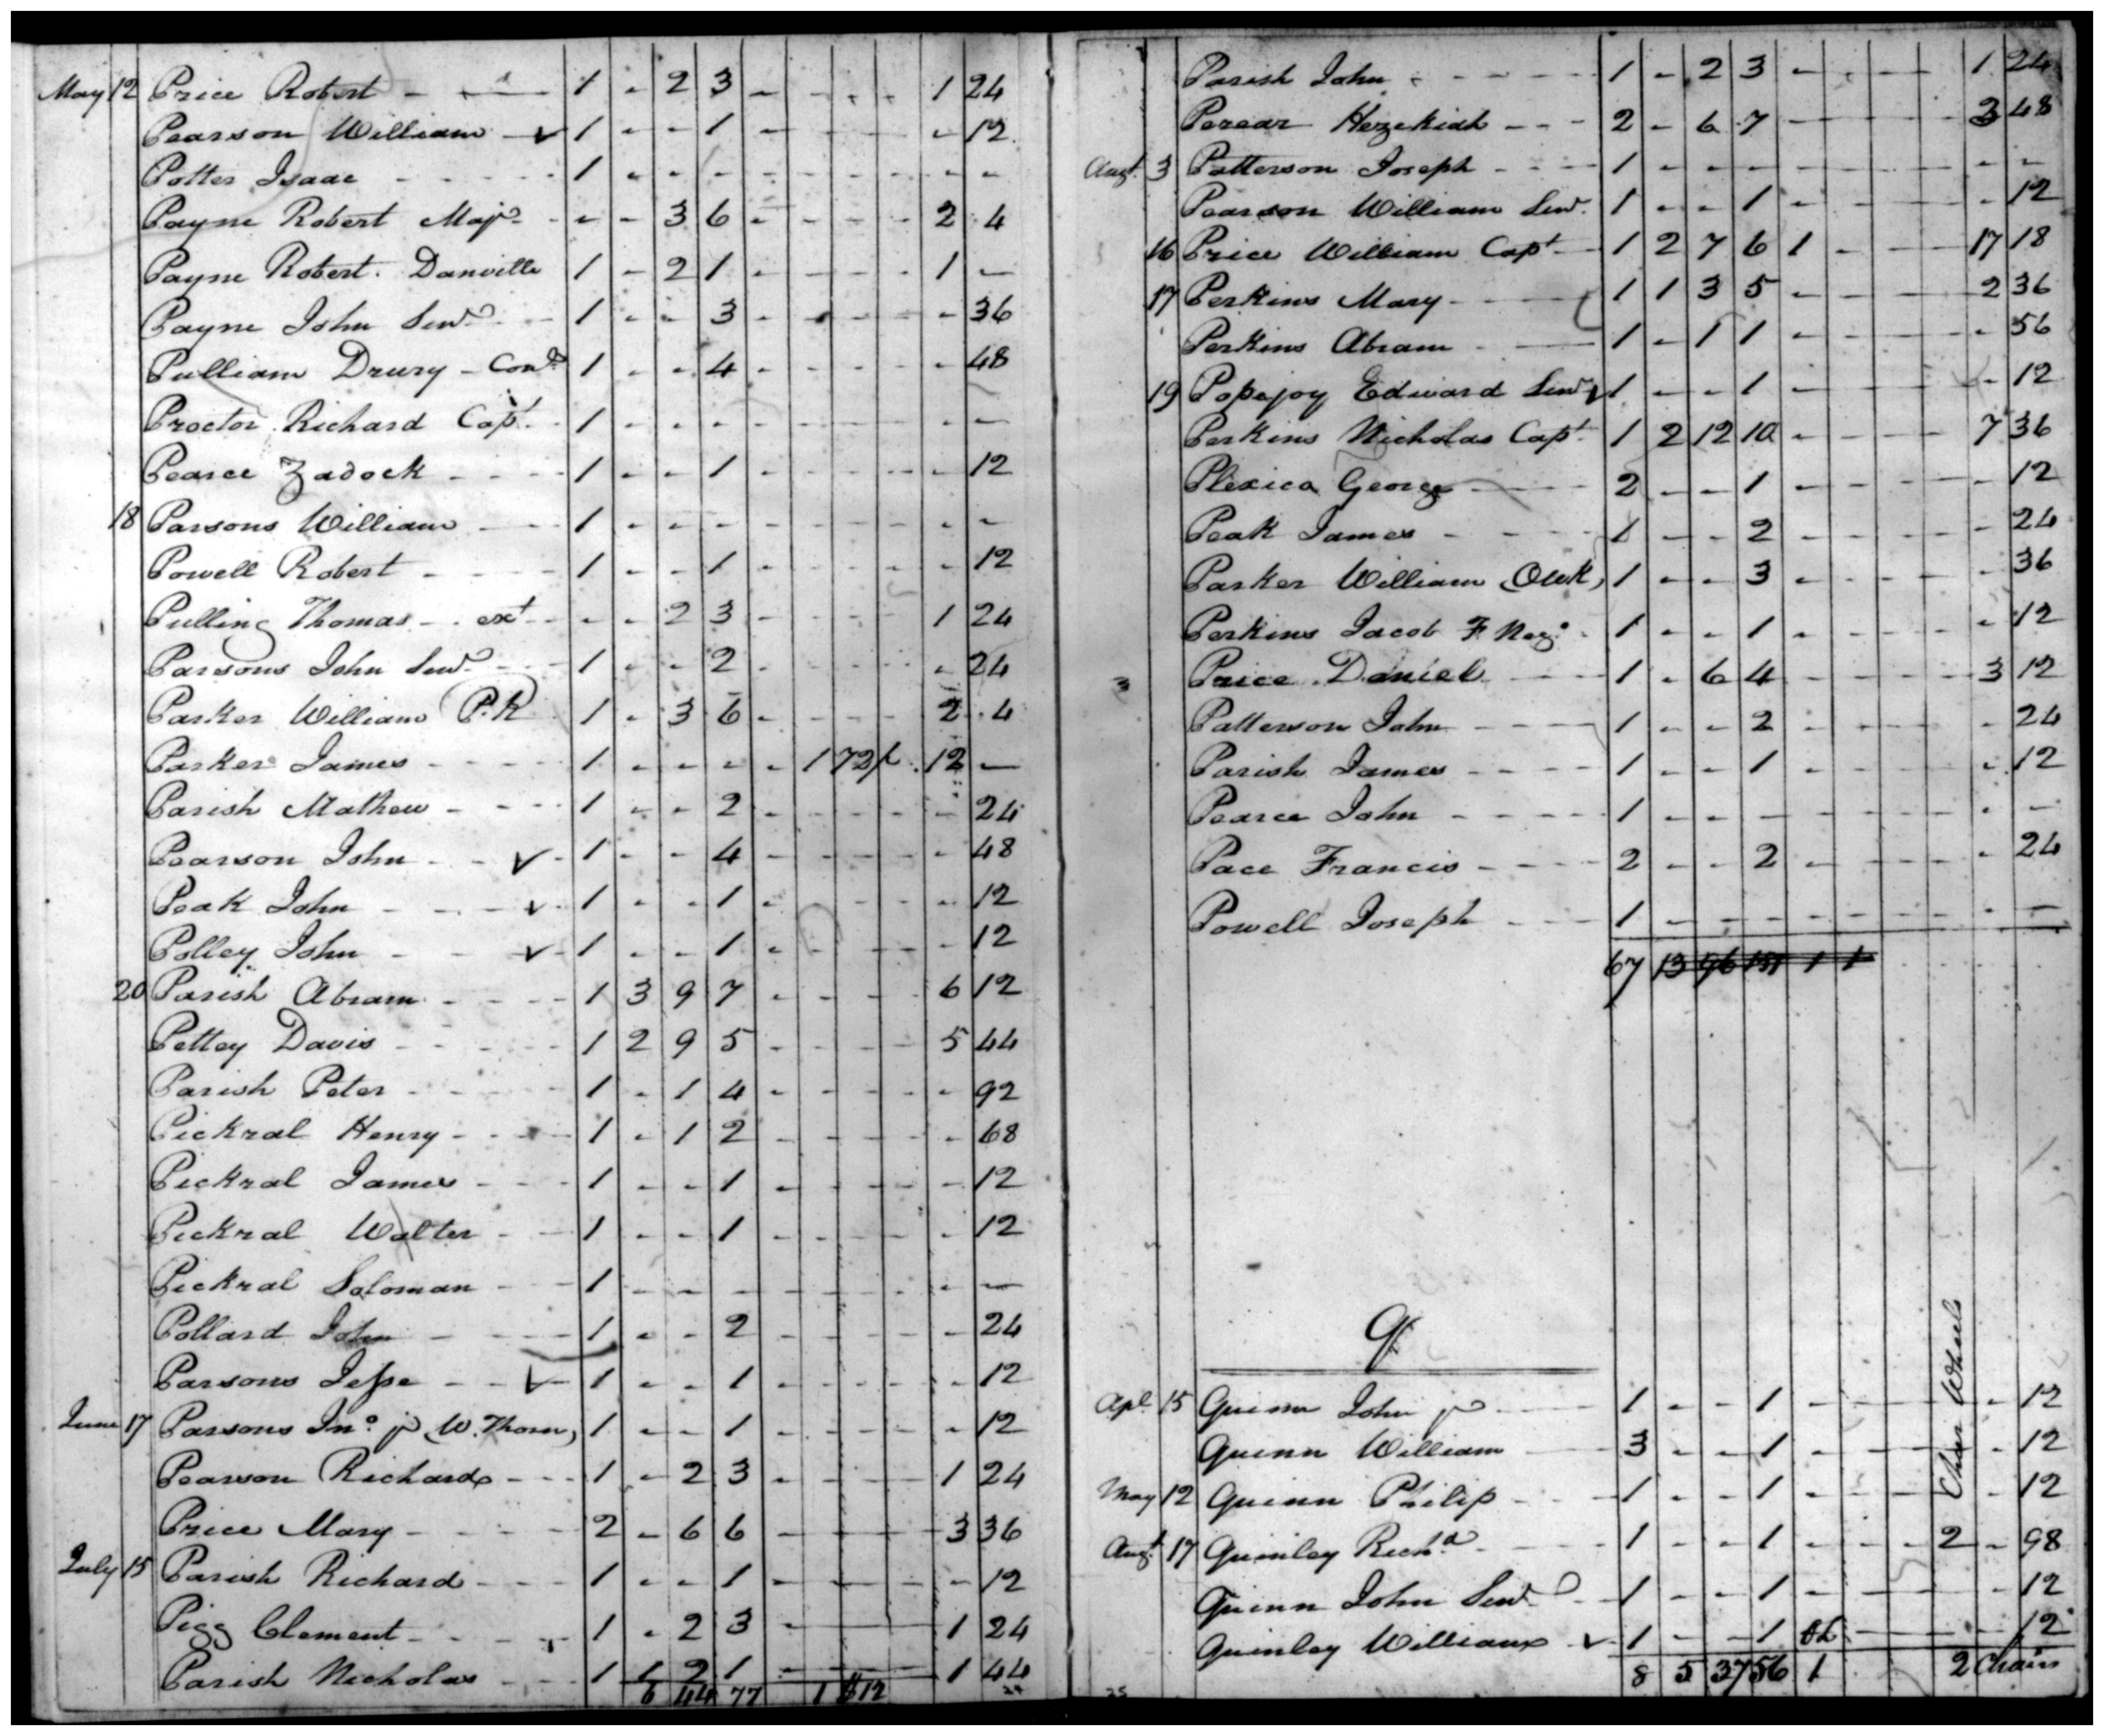 May 12 Price Robert - - 1 - 2 3 - - - - 1 24
Pearson William - ✓ 1 - - 1 - - - - - 12
Potter Isaac - - - - 1 - - - - - - - - -
Payne Robert Majr - - - 3 6 - - - - 2 4
Payne Robert. Danville 1 - 2 1 - - - - 1 -
Payne John Senr - 1 - - 3 - - - - - 36
Pulliam Drury - Cond 1 - - 4 - - - - - 48
Proctor Richard Capt. 1 - - - - - - - - -
Pearce Zadock - - - 1 - - 1 - - - - - 12
18 Parsons William - - 1 - - - - - - - - -
Powell Robert - - - 1 - - 1 - - - - - 12
Pulling Thomas - ext - - 2 3 - - - - 1 24
Parsons John Senr - - 1 - - 2 - - - - - 24
Parker William P.R 1 - 3 6 - - - - 2 4
Parker James - - - - 1 - - - - 1 72 12 -
Parish Mathew - - - 1 - - 2 - - - - - 24
Pearson John - - ✓ - 1 - - 4 - - - - - 48
Peak John - - - ✓ - 1 - - 1 - - - - - 12
Polley John - - ✓ - 1 - - 1 - - - - - 12
20 Parish Abram - - - 1 3 9 7 - - - - 6 12
Pettey Davis - - - - 1 2 9 5 - - - - 5 44
Parish Peter - - - - 1 - 1 4 - - - - - 92
Pickral Henry - - - 1 - 1 2 - - - - - 68
Pickral James - - - 1 - - 1 - - - - - 12
Pickral Walter - - 1 - - 1 - - - - - 12
Pickral Soloman - - 1 - - - - - - - - -
Pollard John - - - 1 - - 2 - - - - - 24
Parsons Jesse - - ✓ - 1 - - 1 - - - - - 12
June 17 Parsons Jno. jr (W. Thorn) 1 - - 1 - - - - - 12
Pearson Richard - - - 1 - 2 3 - - - - 1 24
Price Mary - - - - 2 - 6 6 - - - - 3 36
July 15 Parish Richard - - - 1 - - 1 - - - - - 12
Pigg Clement - - - - 1 - 2 3 - - - - 1 24
Parish Nicholas - - 1 1 2 1 - - - - 1 44
6 44 77 1 $12
Parish John - - - - 1 - 2 3 - - - - 1 24
Perear Hezekiah - - - 2 - 6 7 - - - - 3 48
Augt. 3 Patterson Joseph - - - 1 - - - - - - - - -
Pearson William Senr. 1 - - 1 - - - - - 12
16 Price William Capt - 1 2 7 6 1 - - - 17 18
17 Perkins Mary - - - 1 1 3 5 - - - - 2 36
Perkins Abram - - 1 - 1 1 - - - - - 56
19 Popejoy Edward Senr ✓ 1 - - 1 - - - - - 12
Perkins Nicholas Capt. 1 2 12 10 - - - - 7 36
Plexico George - - - 2 - - 1 - - - - - 12
Peak James - - - 1 - - 2 - - - - - 24
Parker William 1 - - 3 - - - - - 36
Perkins Jacob F. Nego. 1 - - 1 - - - - - 12
3 Price Daniel - - - 1 - 6 4 - - - - 3 12
Patterson John - - - 1 - - 2 - - - - - 24
Parish James - - - - 1 - - 1 - - - - - 12
Pearce John - - - - 1 - - - - - - - - -
Pace Francis - - - - 2 - - 2 - - - - - 24
Powell Joseph - - - 1 - - - - - - - - -
67 13 96 151 1 1
Q.
Chair Wheels
Apl. 15 Quinn John jr - - 1 - - 1 - - - - - 12
Quinn William - 3 - - 1 - - - - - 12
May 12 Quinn Philip - - - 1 - - 1 - - - - - 12
Augt. 17 Quinley Richd - - - 1 - - 1 - - - 2 - 98
Quinn John Senr - 1 - - 1 - - - - - 12
Quinley William ✓ 1 - - 1 - - - - 12
8 5 37 56 1 2 Chair
25